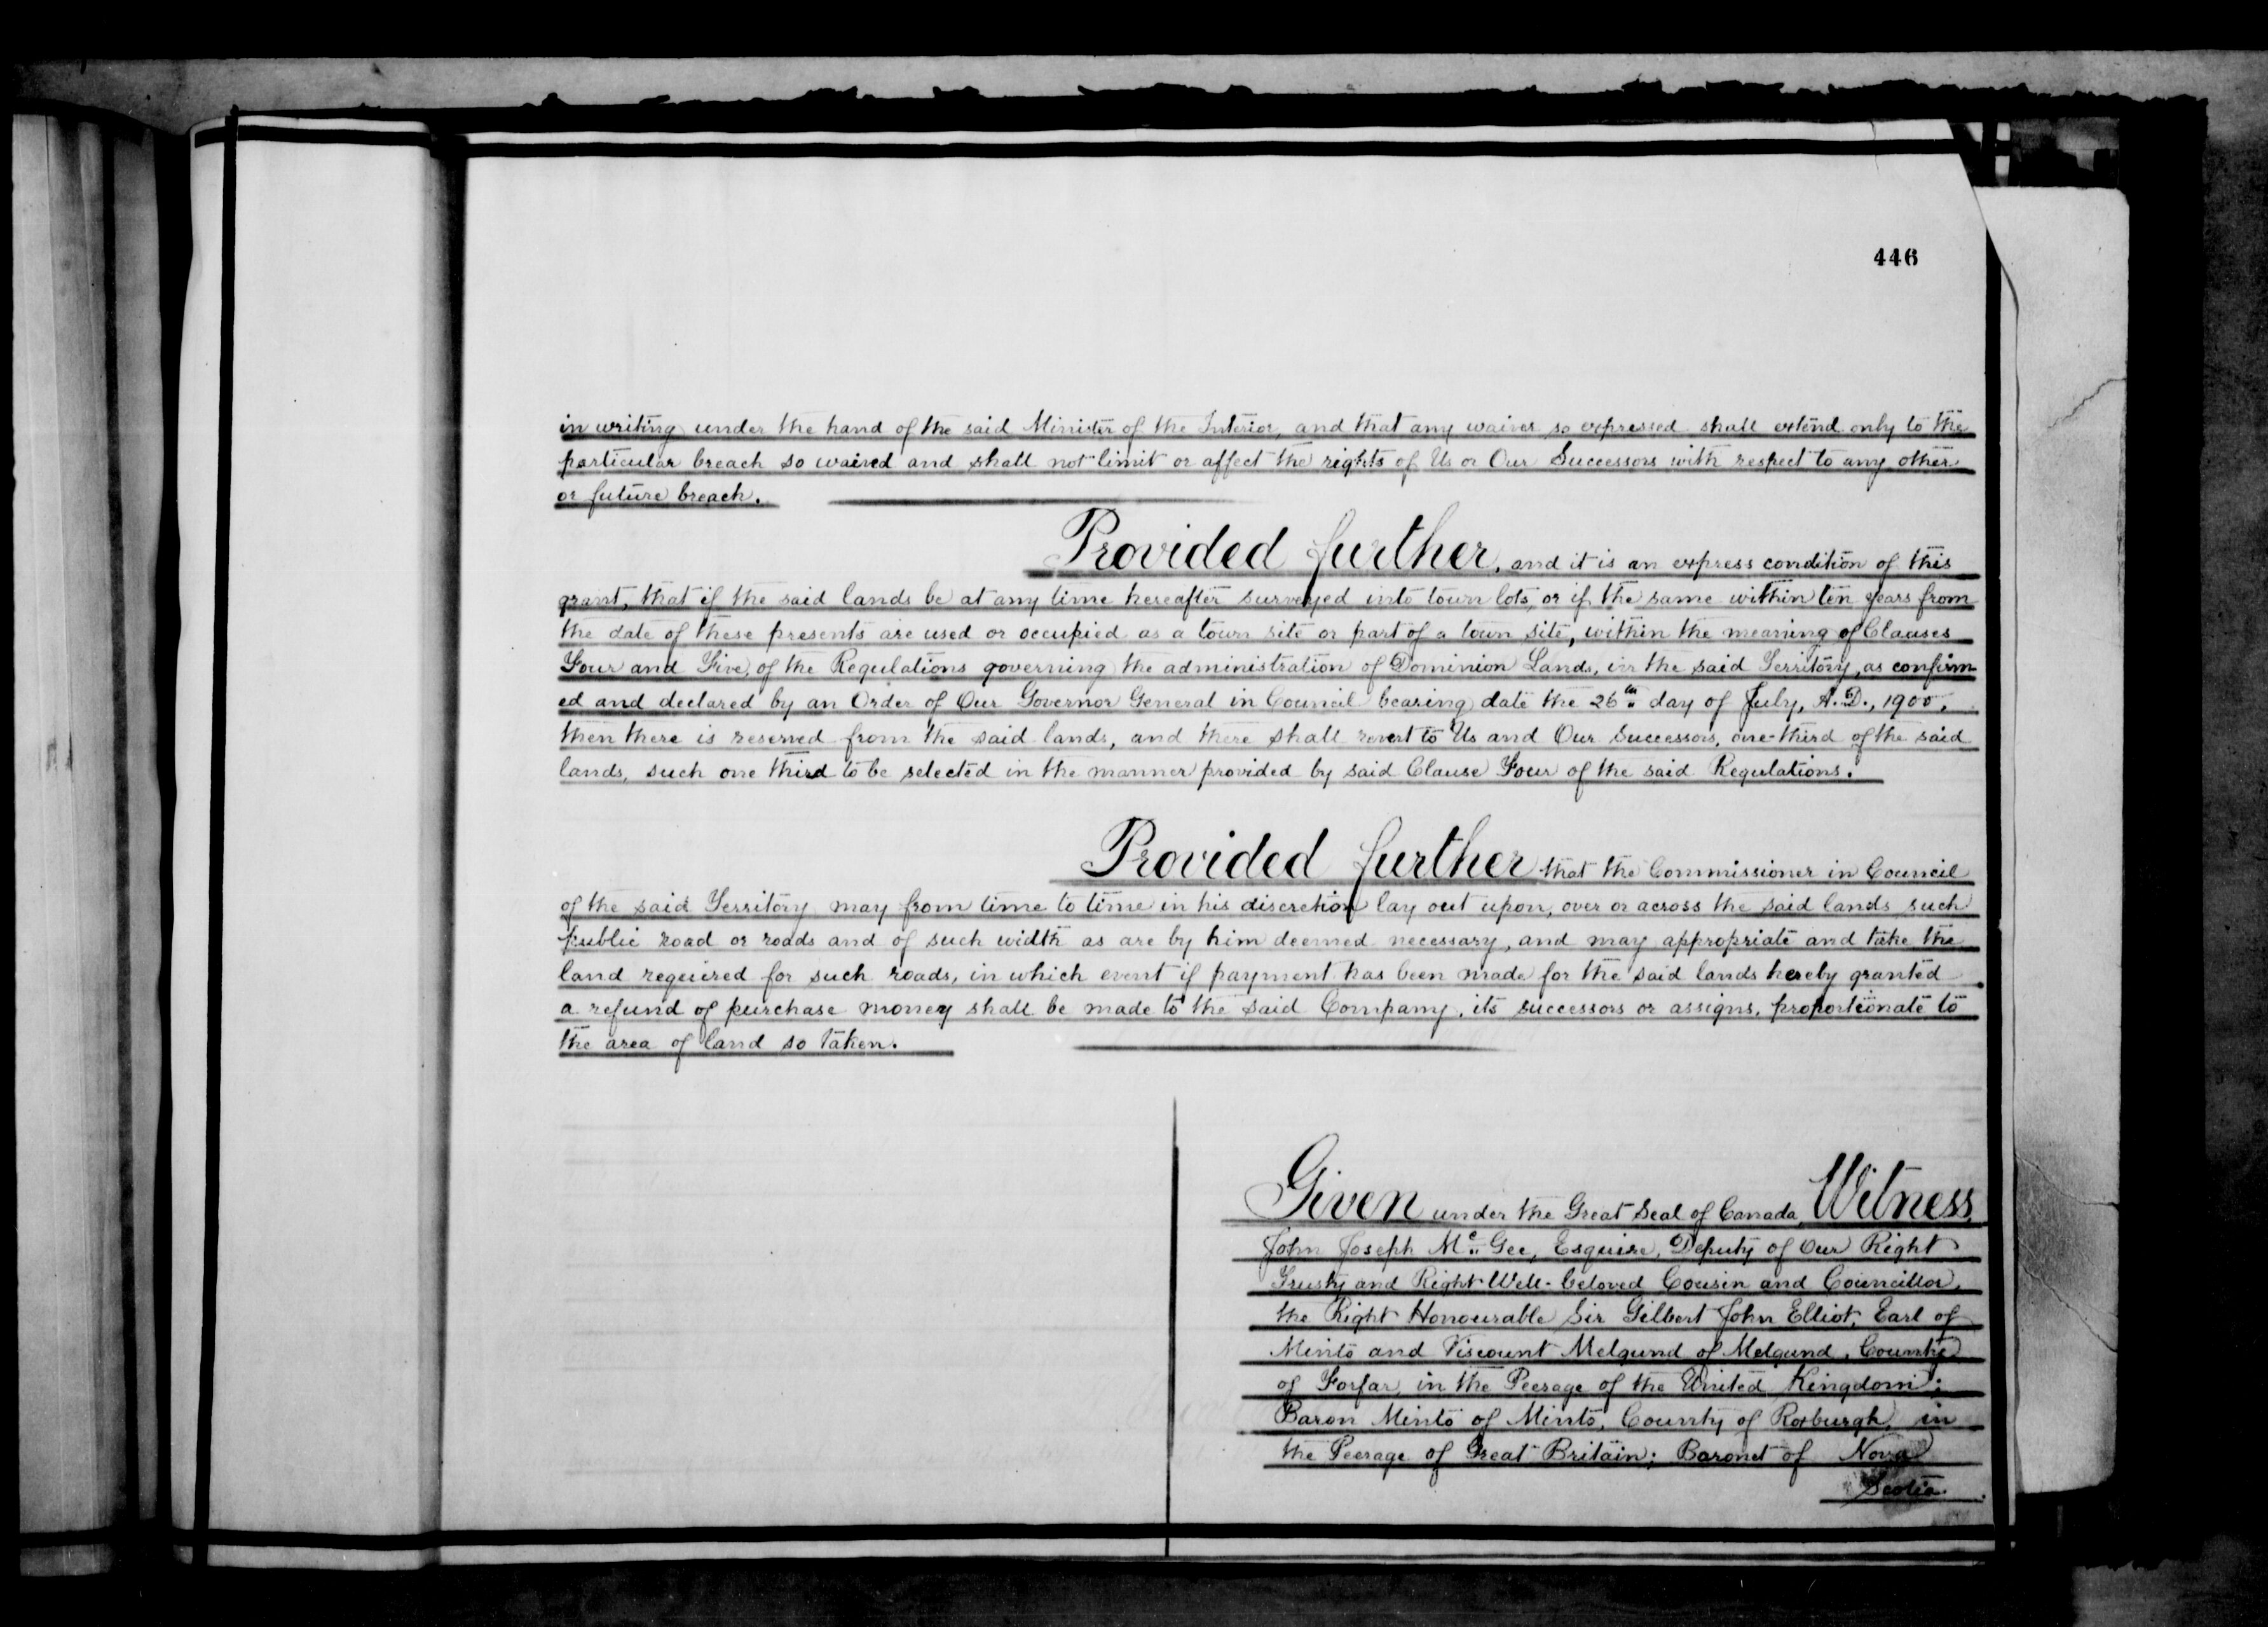 446
in writing under the hand of the said Minister of the Interior, and that any waiver so expressed shall extend only to the
particular breach so waived and shall not limit or affect the rights of Us or Our Successors with respect to any other
or future breach.
Provided further, and it is an express condition of this
grant, that if the said lands be at any time hereafter surveyed into town lots, or if the same within ten years from
the date of these presents are used or occupied as a town site or part of a town site, within the meaning of Clauses
Four and Five, of the Regulations governing the administration of Dominion Lands, in the said Territory, as confirm-
ed and declared by an Order of Our Governor General in Council bearing date the 26th day of July, A.D., 1900,
then there is reserved from the said lands, and there shall revert to Us and Our Successors, one-third of the said
lands, such one third to be selected in the manner provided by said Clause Four of the said Regulations.
Provided further that the Commissioner in Council
of the said Territory may from time to time in his discretion lay out upon, over or across the said lands such
public road or roads and of such width as are by him deemed necessary, and may appropriate and take the
land required for such roads, in which event if payment has been made for the said lands hereby granted
a refund of purchase money shall be made to the said Company, its successors or assigns, proportionate to
the area of land so taken.
Given under the Great Seal of Canada, Witness,
John Joseph McGee, Esquire, Deputy of Our Right
Trusty and Right Well-beloved Cousin and Councillor,
the Right Honourable Sir Gilbert John Elliot, Earl of
Minto and Viscount Melgund of Melgund, County
of Forfar, in the Peerage of the United Kingdom;
Baron Minto of Minto, County of Roxburgh, in
the Peerage of Great Britain; Baronet of Nova
Scotia.